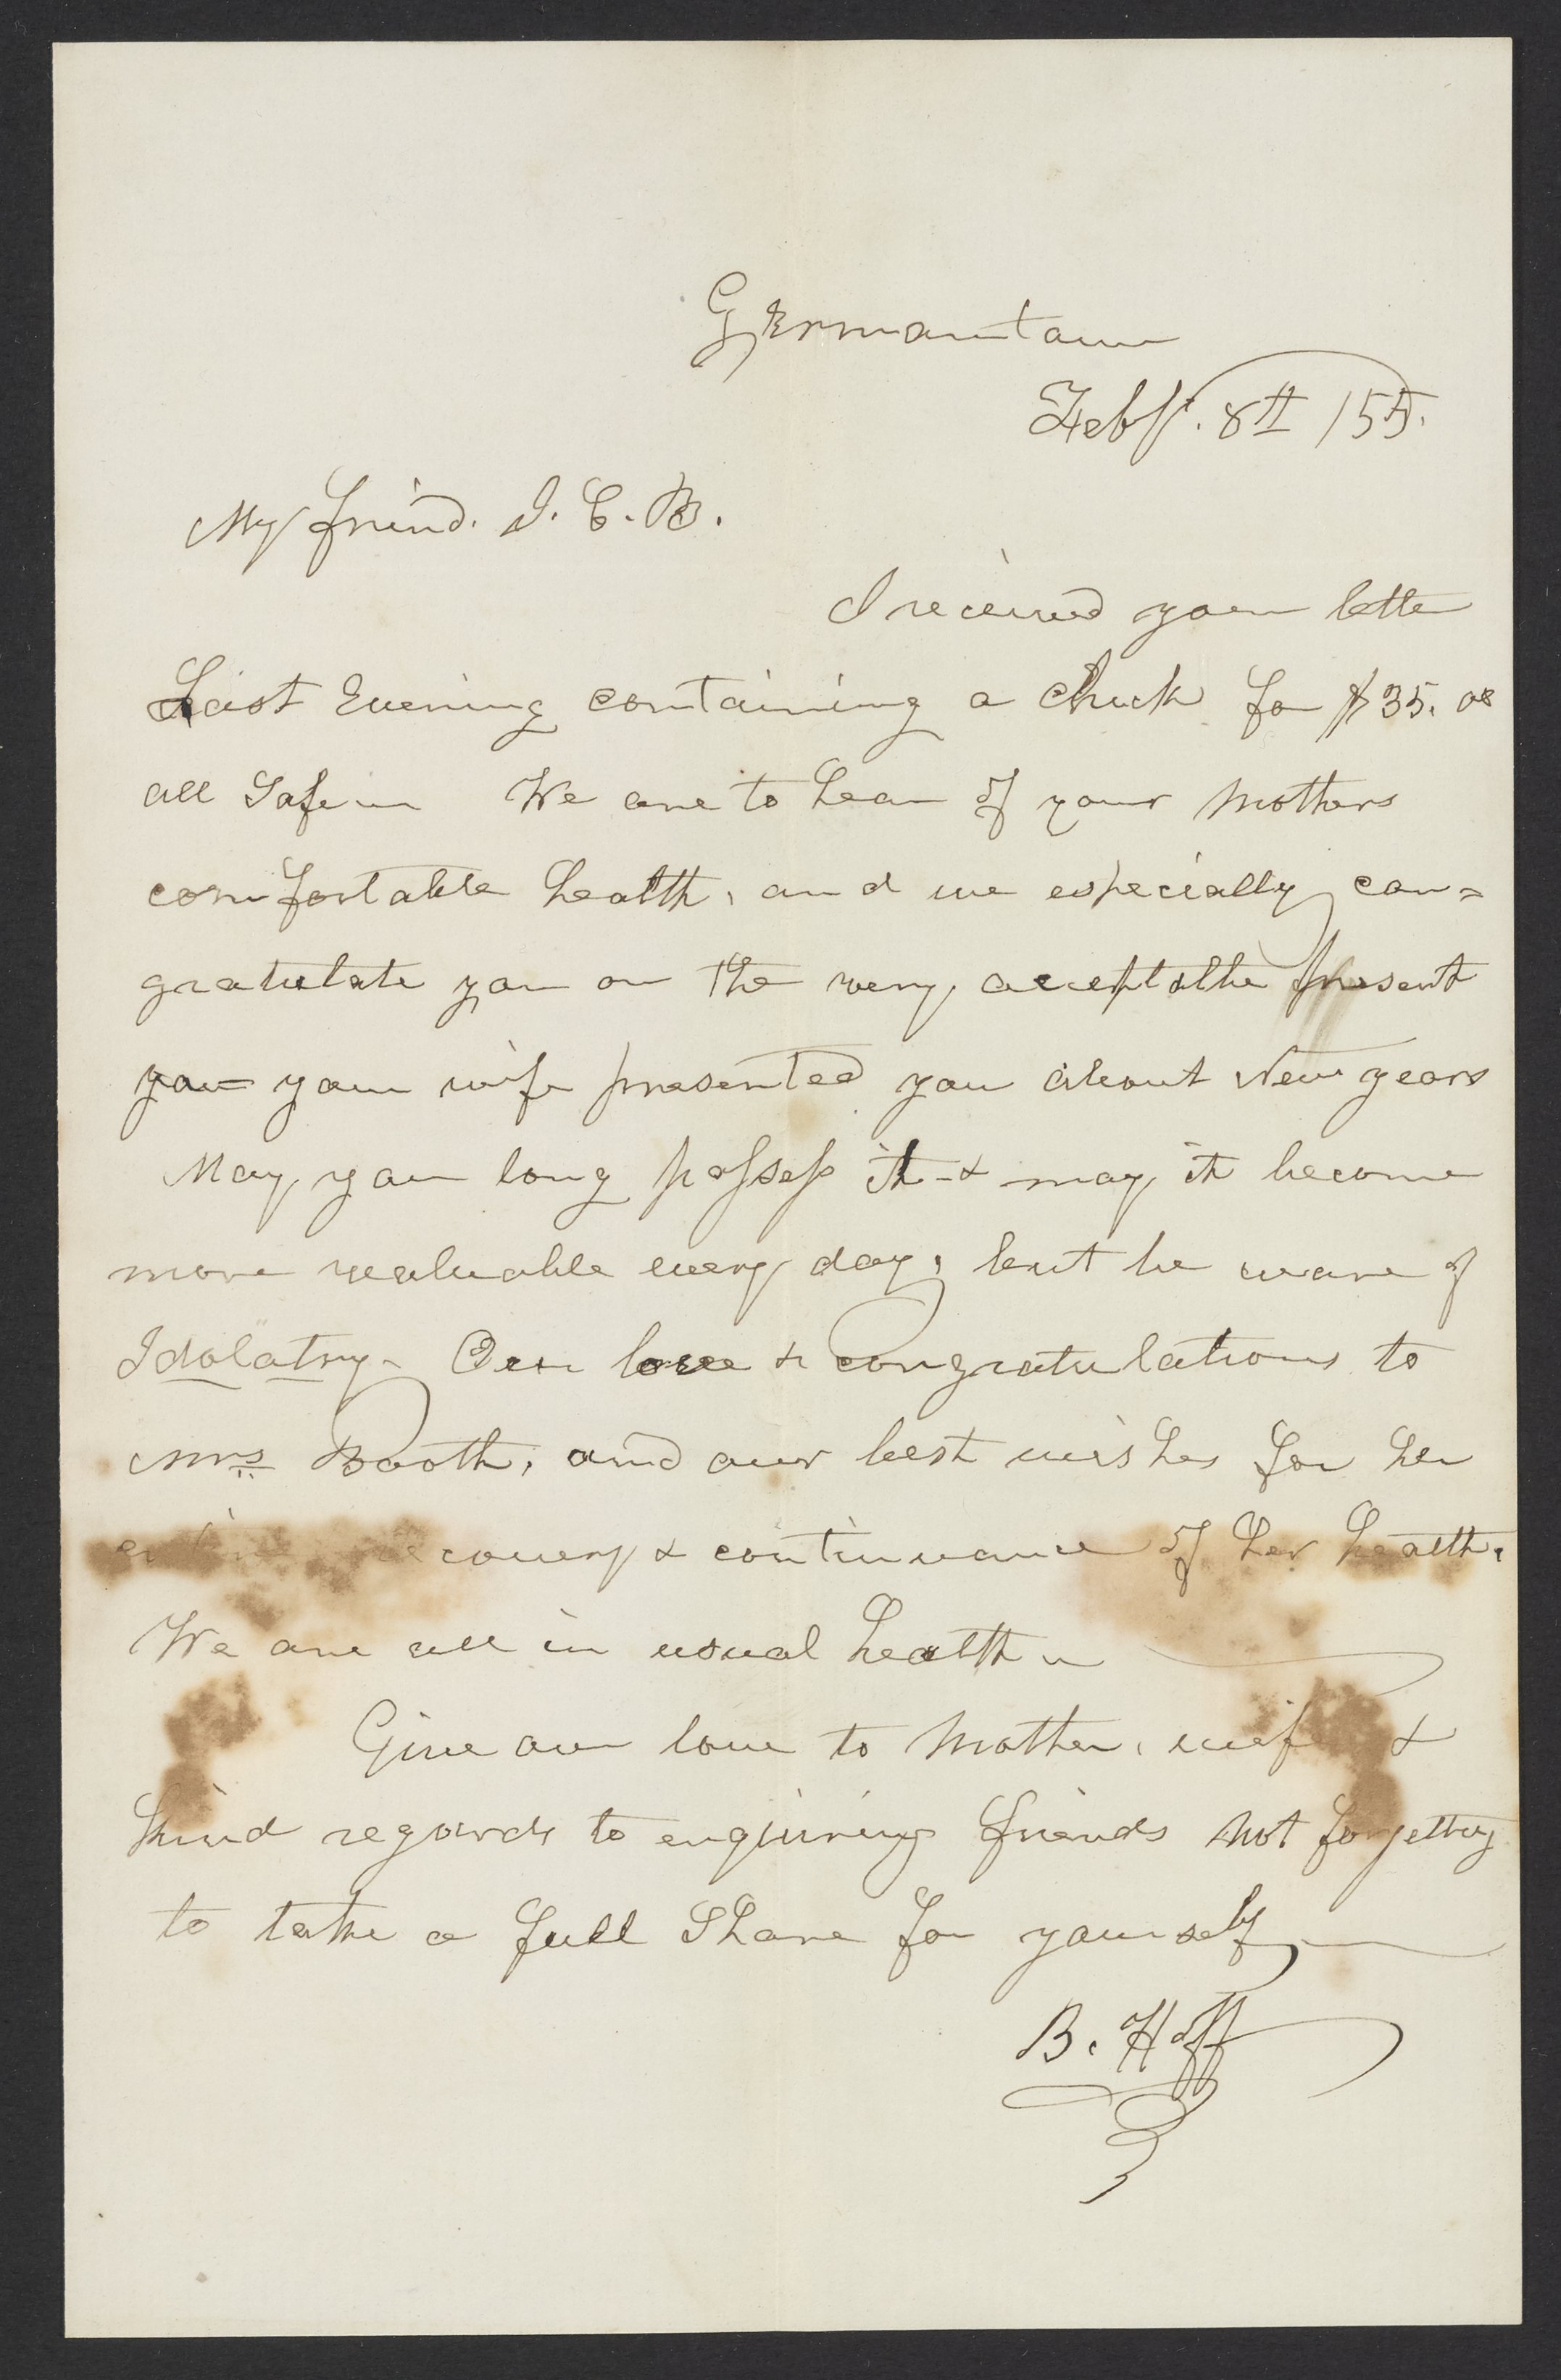 Germantown
Feby. 8th /55.
My friend. J. C. B.
I received your letter
Last Evening containing a Check for $35. 08
all Safe — We are to hear of your Mothers
comfortable health, and we especially con=
gratulate you on the very acceptable present
you your wife presented you about New years
May you long possess it - & may it become
more valuable every day, but be ware of
Idolatry - Our love & congratulations to
Mrs Booth, and our best wishes for her
entire recovery & continuance of her health.
We are all in usual health —
Give our love to Mother, wife &
kind regards to enquiring friends not forgetting
to take a full Share for yourself —
B. Hoff